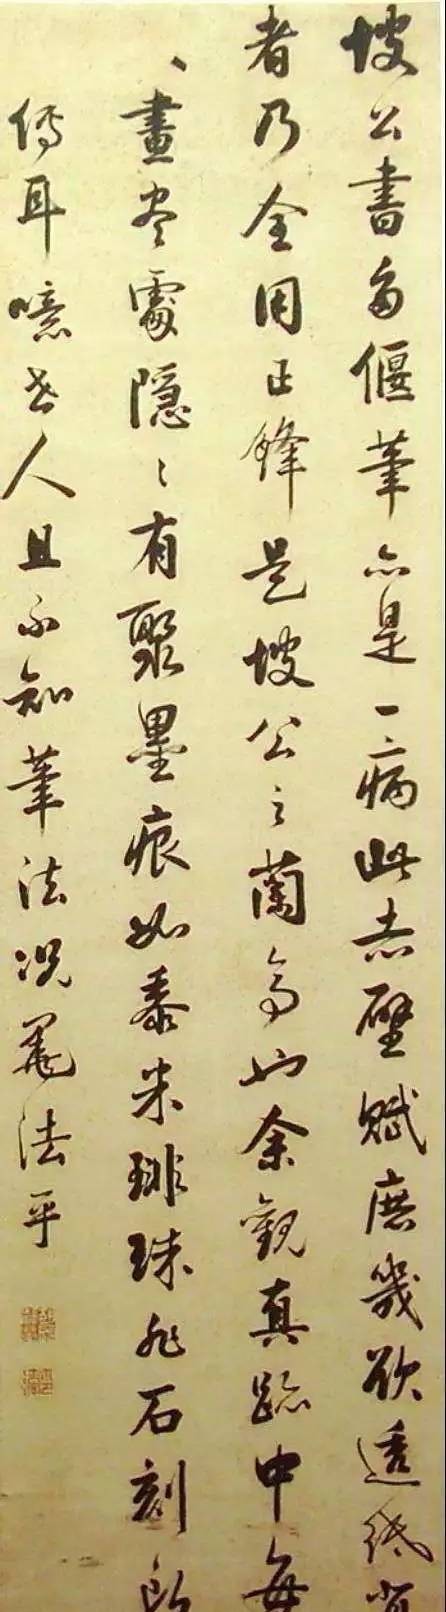 坡公書多偃筆亦是一病此赤壁賦庶幾欲透紙背
者乃全用正鋒是坡公之蘭亭也余觀真跡中每
、畫盡處隱、有聚墨痕如黍米琲珠非石刻所
傳耳噫世人且不知筆法況墨法乎